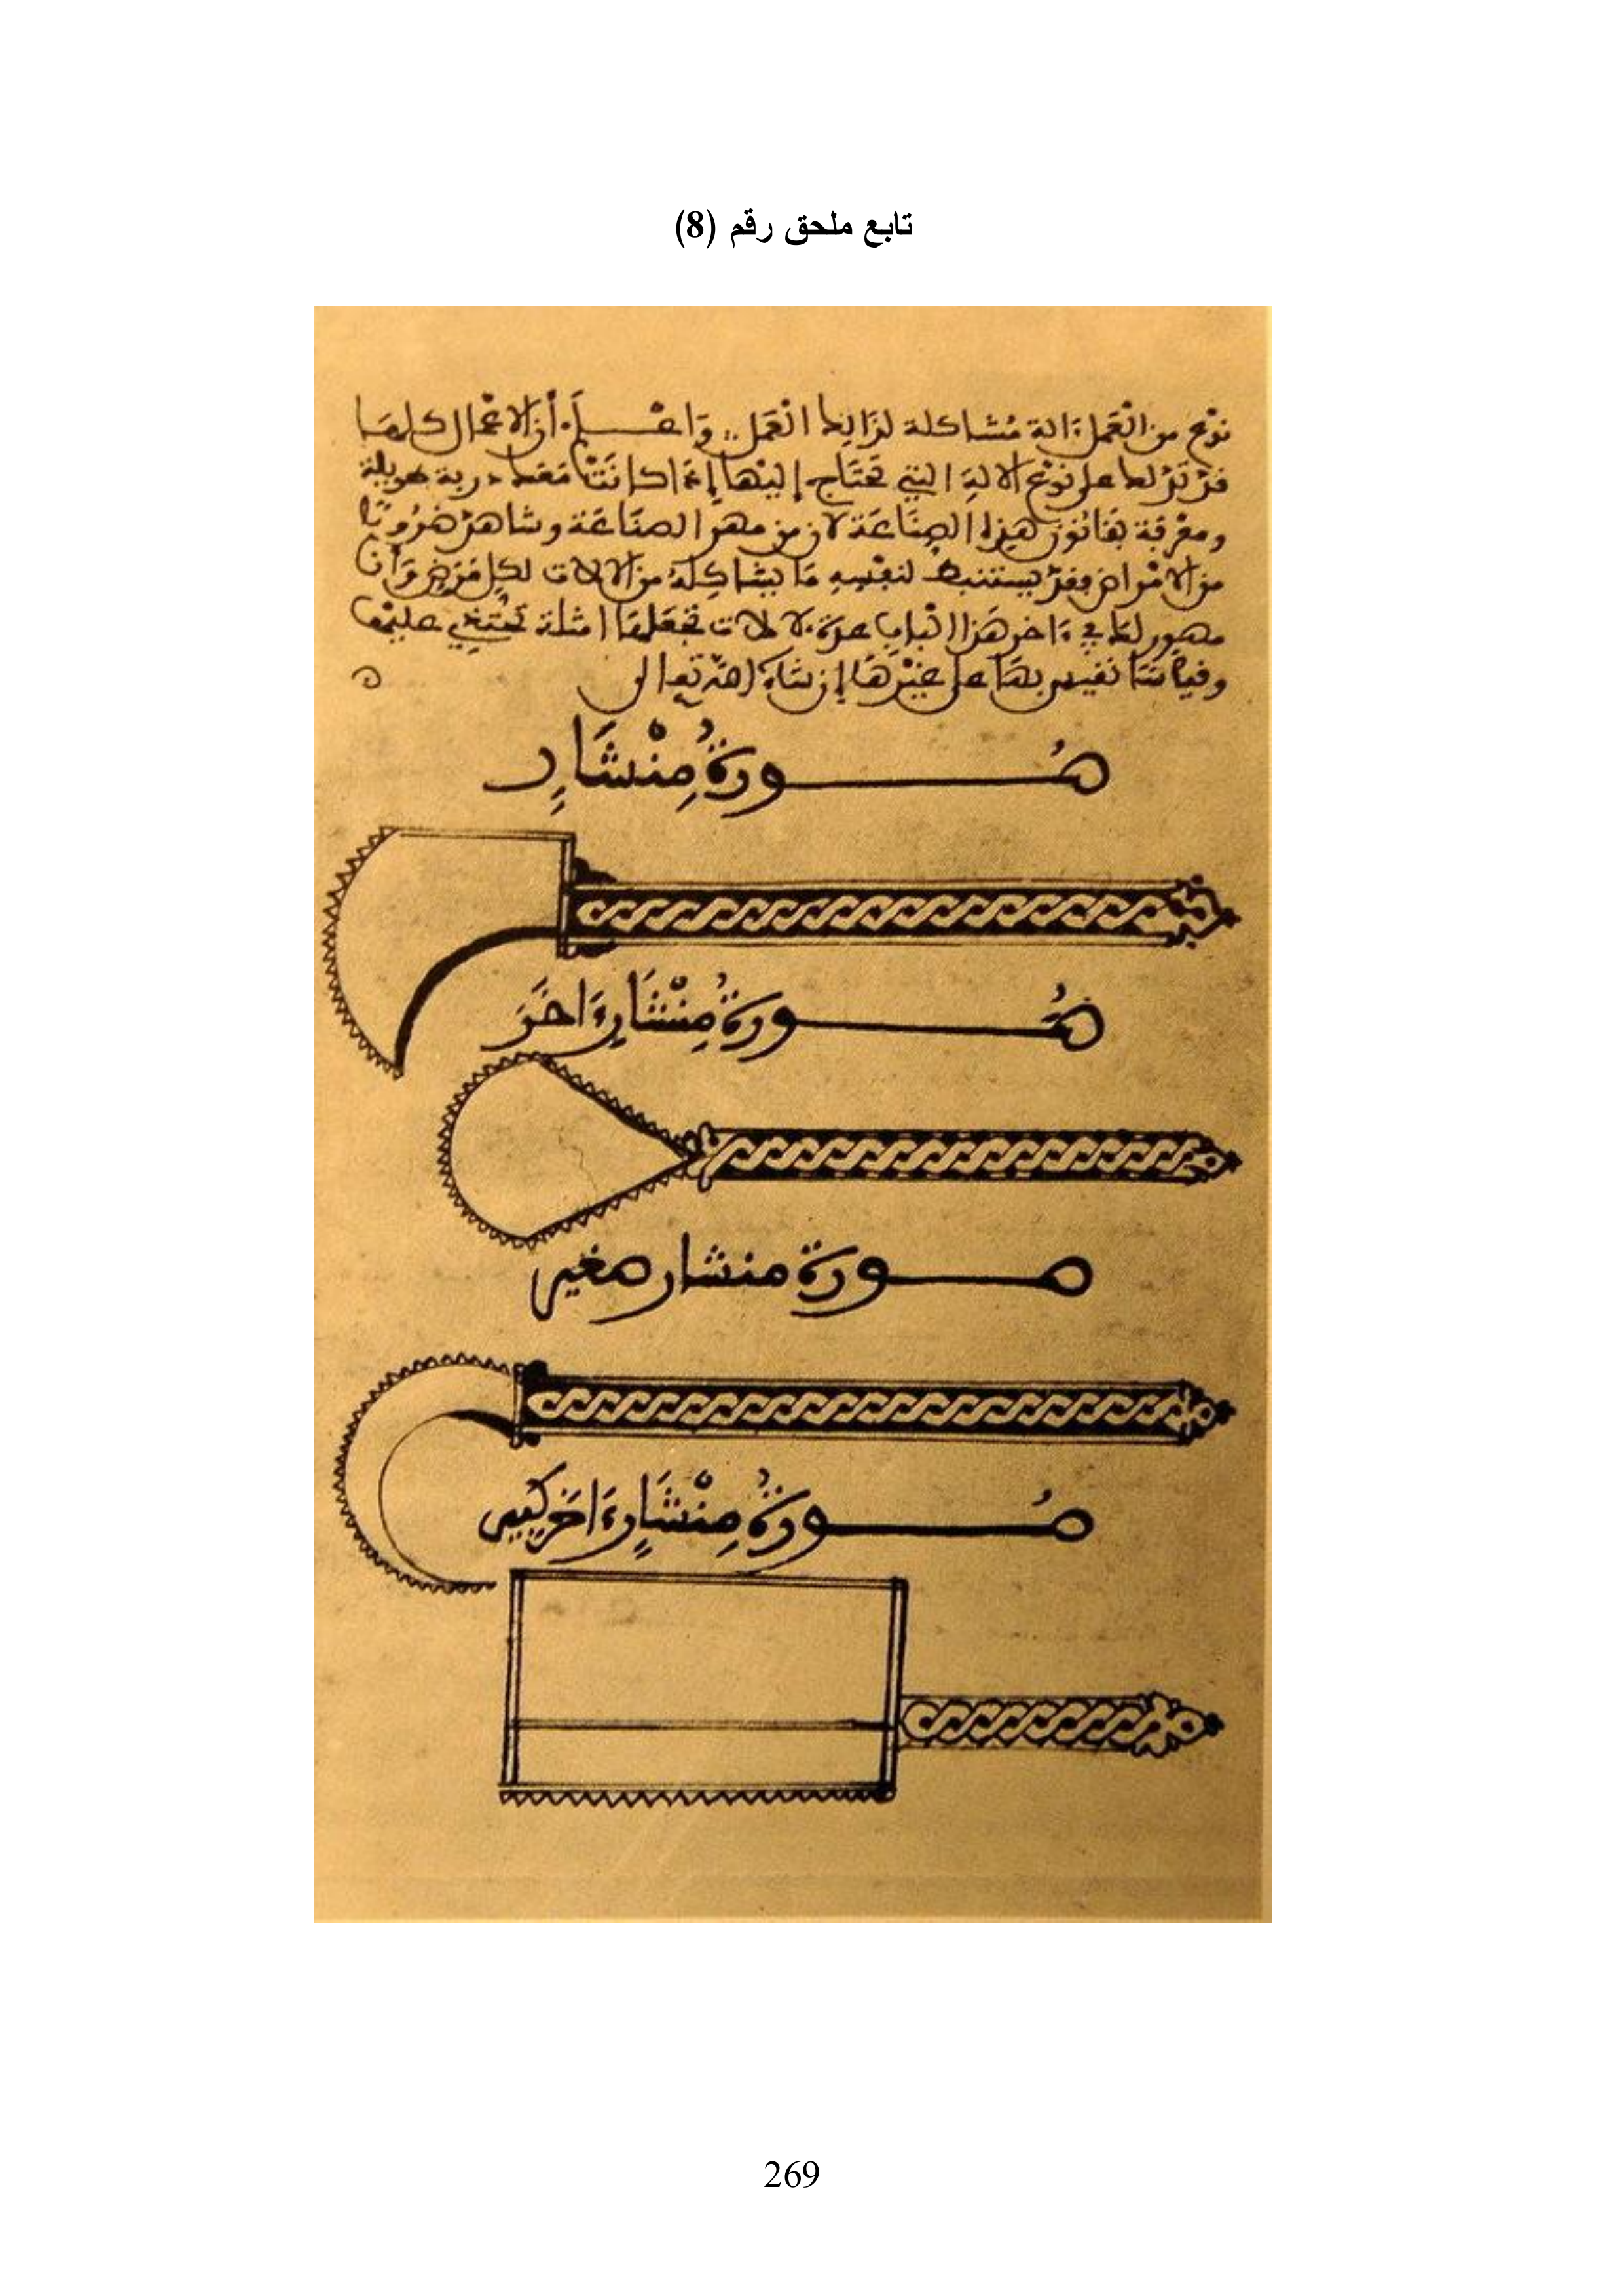 تابع ملحق رقم (8)
نوع من العمل ءالة مشاكلة لذالك العمل واعـــلم أن الاعمال كلها
قد تدلك على نوع الالة التي تحتاج إليها إنما كانت معك دربة طويلة
ومعرفة بقانون هذه الصناعة لان من مهر الصناعة وشاهد ضروبا
من الامراض فقد يستنبط لنفسه ما يشاكله من الالات لكل مرض وأنا
مصور لك في ءاخر هذا الباب عدة الات تجعلها امثلة تحتذي عليها
وقياسا تقيس بها على غيرها إن شاء الله تعالى
صُـــورةُ مِنْشَارٍ
صُـــورةُ مِنْشَارِ ءَاخَرَ
صـــورة منشار صغير
صُـــورةُ مِنْشَارٍ ءَاخَر كَبير
269